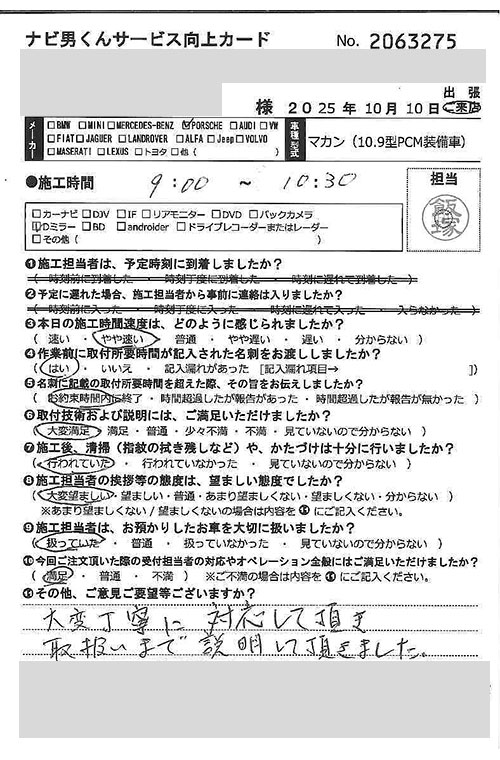 ナビ男くんサービス向上カード No. 2063275
出張
様 2025年10月10日 ご来店
メーカー □BMW □MINI □MERCEDES-BENZ ☑PORSCHE □AUDI □VW
□FIAT □JAGUER □LANDROVER □ALFA □Jeep □VOLVO
□MASERATI □LEXUS □トヨタ □他 ( )
車種型式 マカン（10.9型PCM装備車）
●施工時間 9:00 ～ 10:30
担当
飯塚
□カーナビ □DJV □IF □リアモニター □DVD □バックカメラ
☑Dミラー □BD □androider □ドライブレコーダーまたはレーダー
□その他 ( )
❶施工担当者は、予定時刻に到着しましたか？
( 時刻前に到着した ・ 時刻丁度に到着した ・ 時刻に遅れて到着した )
❷予定に遅れた場合、施工担当者から事前に連絡は入りましたか？
( 時刻前に入った ・ 時刻丁度に入った ・ 時刻に遅れて入った ・ 入らなかった )
❸本日の施工時間速度は、どのように感じられましたか？
( 速い ・ やや速い ・ 普通 ・ やや遅い ・ 遅い ・ 分からない )
❹作業前に取付所要時間が記入された名刺をお渡ししましたか？
( はい ・ いいえ ・ 記入漏れがあった [記入漏れ項目→ ])
❺名刺に記載の取付所要時間を超えた際、その旨をお伝えしましたか？
( お約束時間内に終了 ・ 時間超過したが報告があった ・ 時間超過したが報告が無かった )
❻取付技術および説明には、ご満足いただけましたか？
( 大変満足 ・ 満足 ・ 普通 ・ 少々不満 ・ 不満 ・ 見ていないので分からない )
❼施工後、清掃（指紋の拭き残しなど）や、かたづけは十分に行いましたか？
( 行われていた ・ 行われていなかった ・ 見ていないので分からない )
❽施工担当者の挨拶等の態度は、望ましい態度でしたか？
( 大変望ましい ・ 望ましい ・ 普通 ・ あまり望ましくない ・ 望ましくない ・ 分からない )
※あまり望ましくない / 望ましくないの場合は内容を⓫にご記入ください。
❾施工担当者は、お預かりしたお車を大切に扱いましたか？
( 扱っていた ・ 普通 ・ 扱っていなかった ・ 見ていないので分からない )
❿今回ご注文頂いた際の受付担当者の対応やオペレーション全般にはご満足いただけましたか？
( 満足 ・ 普通 ・ 不満 ) ※ご不満の場合は内容を⓫にご記入ください。
⓫その他、ご意見ご要望等ございますか？
大変丁寧に対応して頂き
取扱いまで説明して頂きました。